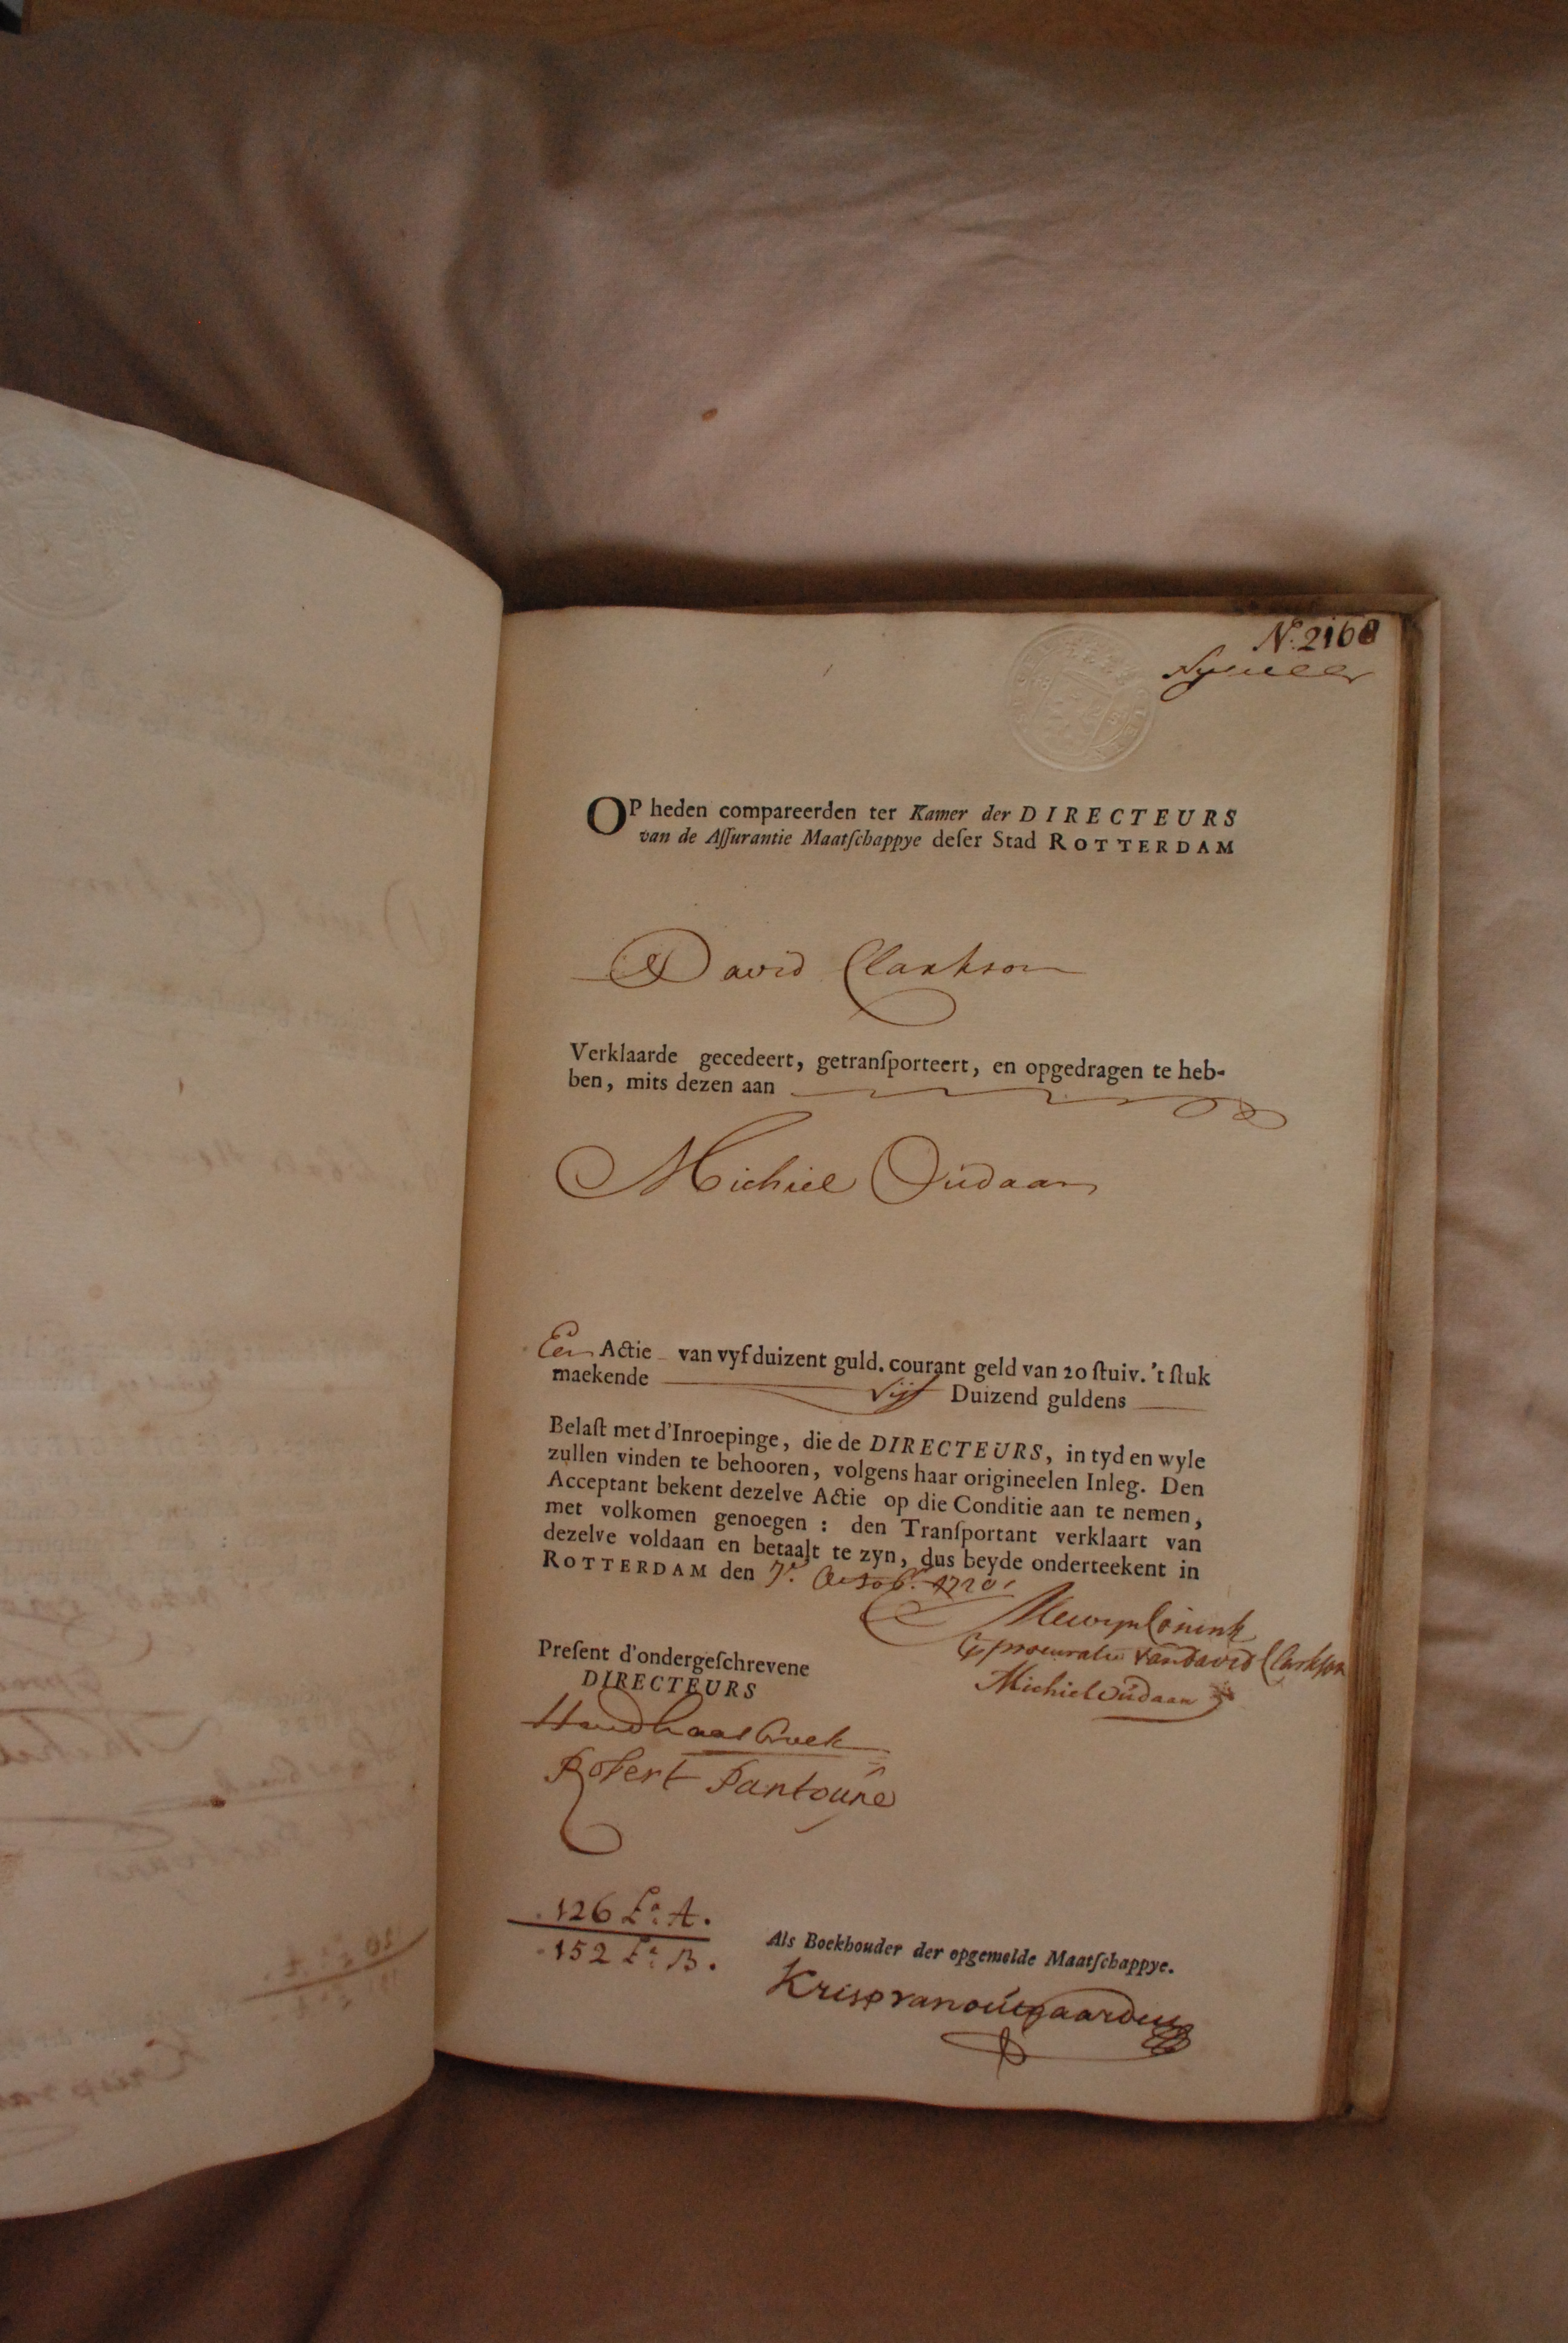 N.º 2168
OP heden compareerden ter Kamer der DIRECTEURS
van de Aſſurantie Maatſchappye deſer Stad ROTTERDAM
David Clarkson
Verklaarde gecedeert, getranſporteert, en opgedragen te heb-
ben, mits dezen aan
Michiel Oudaan
Een Actie van vyfduizent guld. courant geld van 20 ſtuiv. 't ſtuk
maekende Vijf Duizend guldens
Belaſt met d'Inroepinge, die de DIRECTEURS, in tyd en wyle
zullen vinden te behooren, volgens haar origineelen Inleg. Den
Acceptant bekent dezelve Actie op die Conditie aan te nemen,
met volkomen genoegen : den Tranſportant verklaart van
dezelve voldaan en betaalt te zyn, dus beyde onderteekent in
ROTTERDAM den 7.e Octob.r 1720
procuratie van David Clarkson
Michiel Oudaan
Preſent d'ondergeſchrevene
DIRECTEURS
Robert Pantoune
126 L.a A.
152 L.a B.
Als Boekhouder der opgemelde Maatſchappye.
Kris: van outgaarden